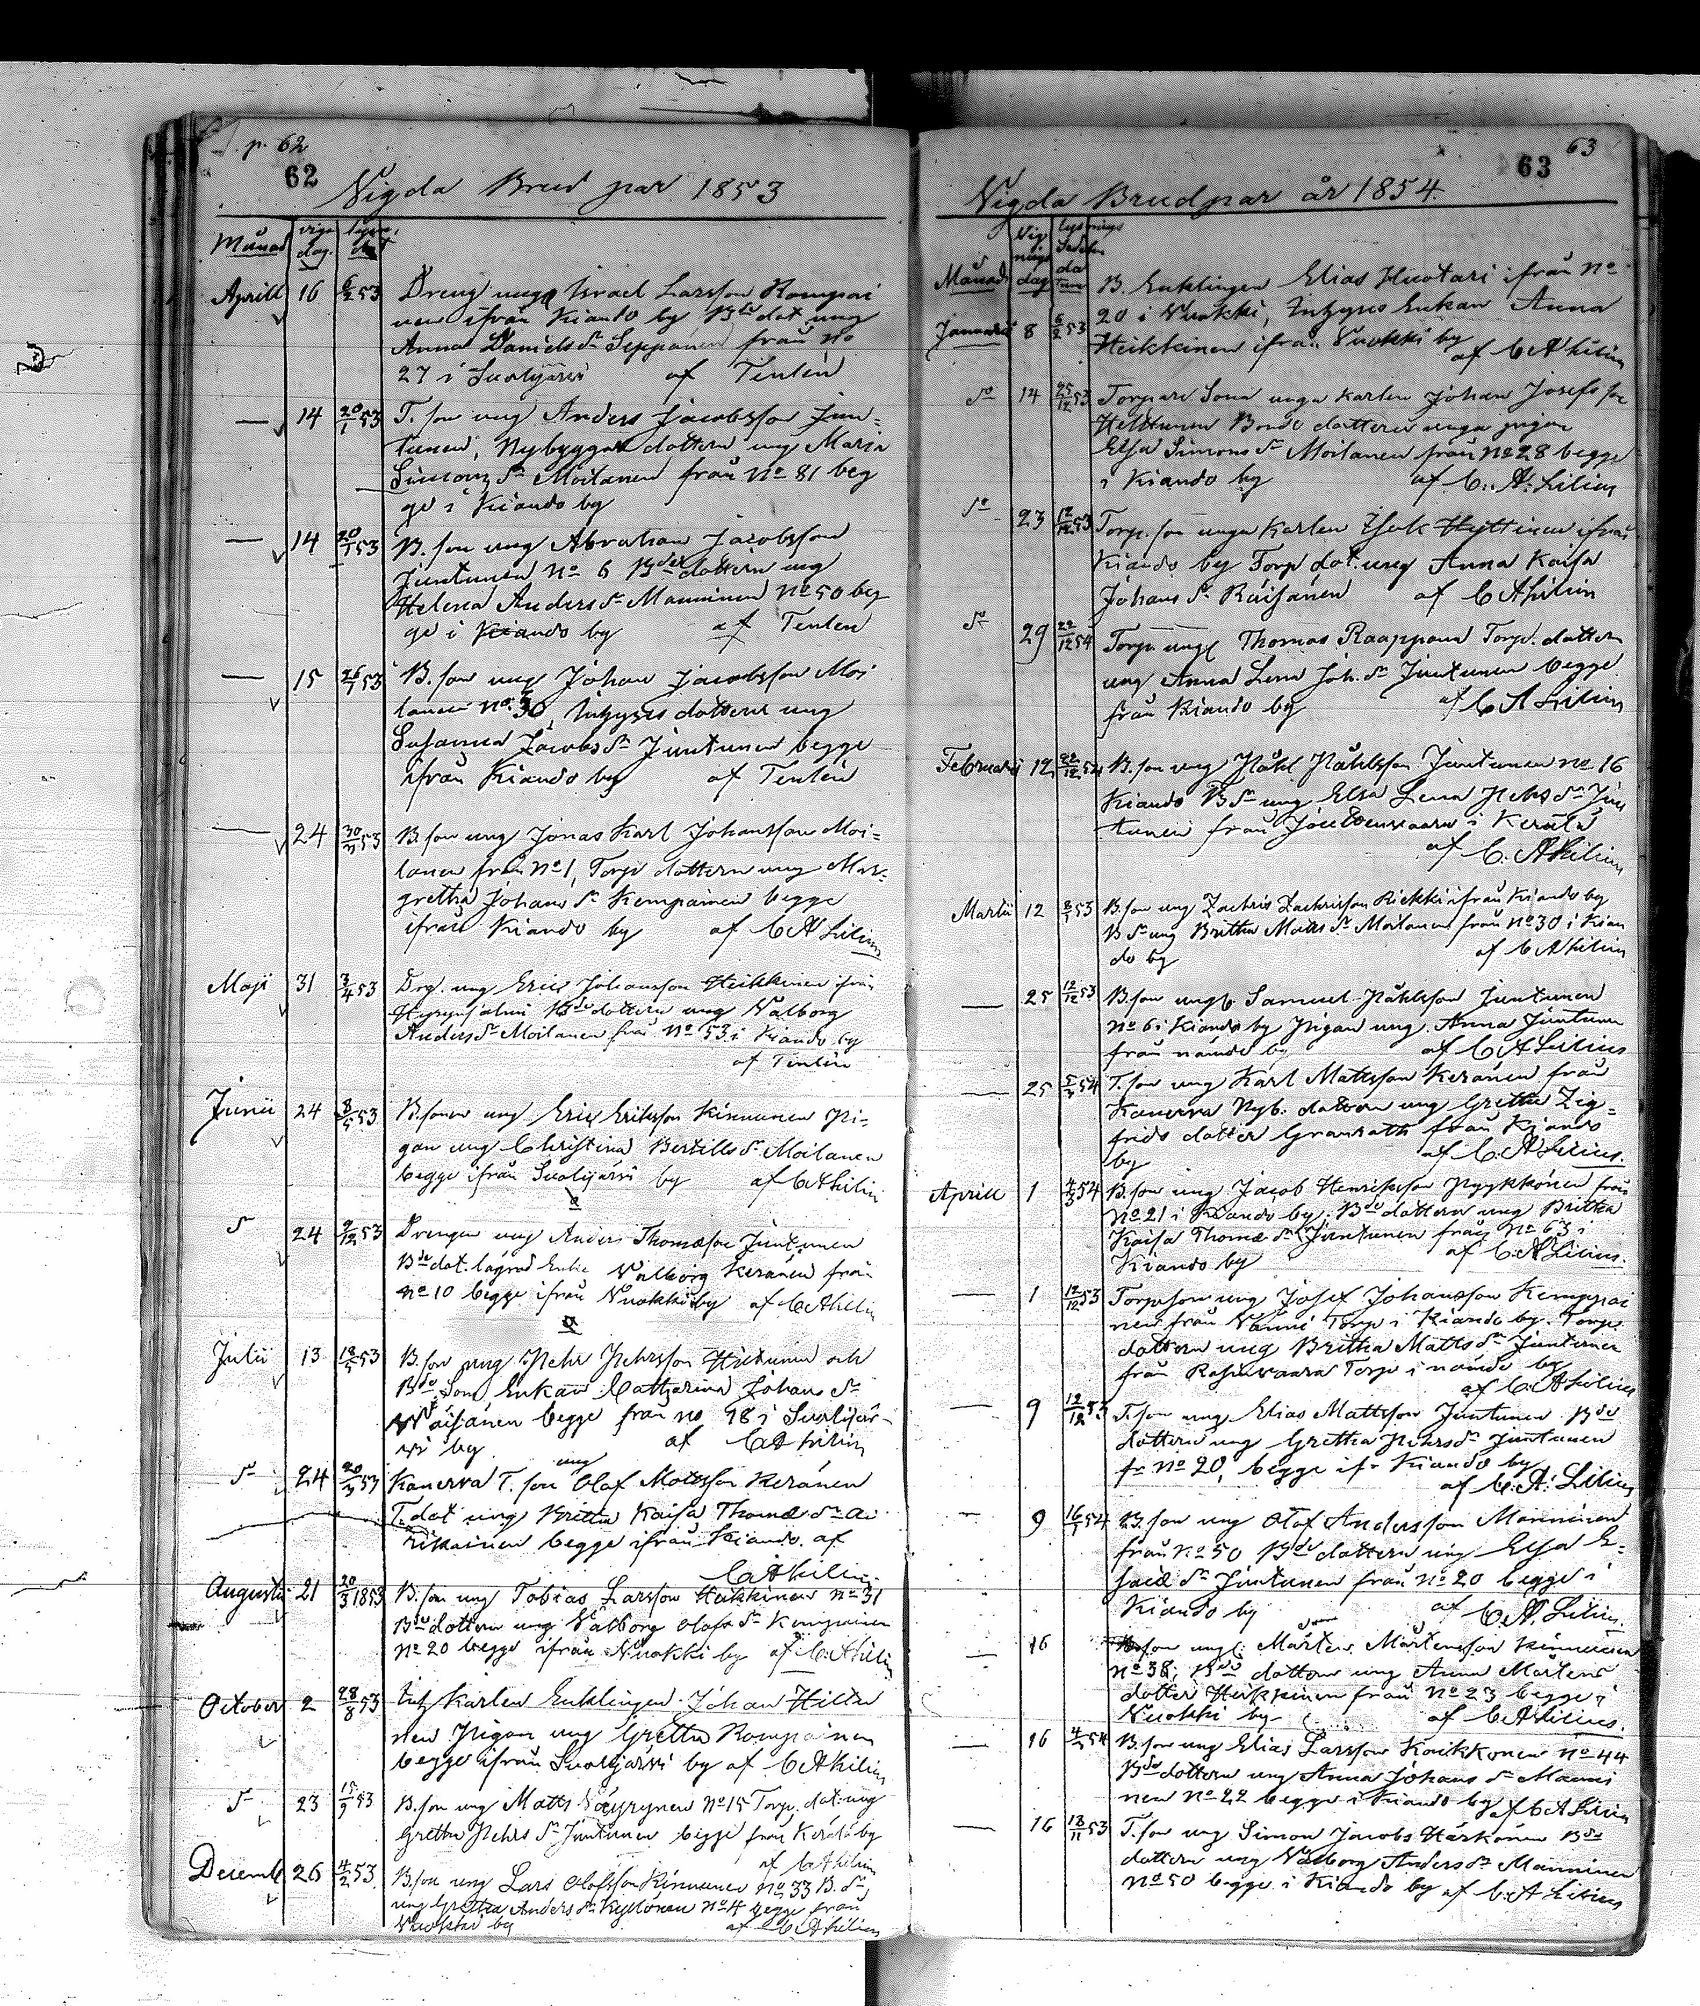 p. 62
62
Vigda Brud par 1853
Månad vigs dag
Aprill 16 6/2 53 Dreng unge Israel Larsson Komppai
nen ifrån Kiando by Bde dot ung
Anna Daniels dr Seppänen från No
27 i Suolijärvi af Tenlén
14 20/1 53 T. son ung Anders Jacobsson Jun=
tunen, Nybyggar dottern ung Maria
Simons dr Moilanen från No 81 beg
ge i Kiando by
14 20/1 53 B. son ung Abraham Jacobsson
Juntunen No 6 Bde dottern ung
Helena Anders dr Manninen No 50 beg
ge i Kiando by af Tenlén
15 26/1 53 B. son ung Johan Jacobsson Moi
lanen No 30, Inhyses dottern ung
Susanna Jacobs dr Juntunen begge
ifrån Kiando by af Tenlén
24 30/ 53 B. son ung Jonas Karl Johansson Moi=
lanen från No 1, Torp dottern ung Mar=
gretha Johans dr Kempainen begge
ifrån Kiando by af C A Lilius
Maji 31 3/4 53 Drg. ung Eric Johansson Heikkinen ifrån
Hyrynsalmi Bde dottern ung Valborg
Anders dr Moilanen från No 53 i Kiando by
af Tenlén
Junii 24 8/5 53 B. sonen ung Eric Ericsson Kinnunen Pi-
gan ung Christina Bertills dr Moilanen
begge ifrån Suolijärvi by af C A Lilius
24 9/12 53 Drengen ung Anders Thomasson Juntunen
Bde dot. lägrad Enka Valborg Keränen från
No 10 begge ifrån Vuokki by af C A Lilius
Julii 13 18/5 53 B. son ung Pehr Pehrsson Hiltunen och
Bde Sons Enkan Catharina Johans dr
Väisänen begge från no 18 i Suolijär-
vi by af C A Lilius
ung
24 20/3 53 Kanerva T. son Olof Matsson Keränen
T. dot ung Britta Kaisa Thomæ dr
begge ifrån Kiando. af
C A Lilius
Augusti 21 20/3 1853 B. son ung Tobias Larsson Heikkinen No 31
Bde dottern ung Valborg Olofs dr Kempainen
No 20 begge ifrån Vuokki by af C. A Lilius
October 2 28/8 53 Inh Karlen Enklingen Johan Hiltu
nen Pigan ung Gretha Kompainen
begge ifrån Suolijärvi by af C A Lilius
23 15/9 53 B. son ung Matts Väyrynen No 15 Torp. dot. ung
Gretha Pehrs dr Juntunen begge från Kerälä by
af C A Lilius
Decemb 26 4/2 53 B. son ung Lars Olofsson Kinnunen No 33 B. dr
ung Gretha Anders dr Kyllönen No 4 begge från
Vuokki by af C A Lilius
63
63
Vigda Brudpar år 1854.
Månad Vig nings dag lysnings Sedeln datum
B. Enklingen Elias Huotari ifrån No
Januari 8 6/2 53 20 i Vuokki, Inhyses Enkan Anna
Heikkinen ifrån Vuokki by
af C A Lilius
14 25/12 53 Torpare Sonn unga Karlen Johan Josefsson
Heldtunen Bonde dottern unga pigan
Elsa Simons dr Moilanen från No 28 begge
i Kiando by af C. A. Lilius
23 12/12 53 Torp. son unga Karlen Isak Hyttinen ifrån
Kiando by Torp dot. ung Anna Kaisa
Johans dr Räisänen af C A Lilius
29 22/12 54 Torp. ung Thomas Raappana Torp. dottern
ung Anna Lena Joh. dr Juntunen begge
från Kiando by af C A Lilius
Februari 12 22/12 54 B. son ung Påhl Påhlsson Juntunen No 16
Kiando B dr ung Elsa Lena Pehrs dr Jun
tunen från i Kerälä
af C. A Lilius
Martii 12 8/1 53 B. son ung Zachris Zachrisson Kikki ifrån Kiando by
B dr ung Britha Matts dr Moilanen från No 30 i Kian
do by af C A Lilius
25 12/12 53 B. son ung Samuel Påhlsson Juntunen
No 6 i Kiando by Pigan ung Anna Juntunen
från nämde by af C A Lilius
25 5/3 54 T. son ung Karl Mattsson Keränen från
Kanerva Nyb. dottern ung Gretha Zig=
frids dotter Granrath från Kiando
by af C. A Lilius.
Aprill 1 4/3 54 B. son ung Jacob Henriksson Pyykkönen från
No 21 i Kiando by. Bde dottern ung Britha
Kaisa Thomæ dr Juntunen från No 63 i
Kiando by af C. A Lilius.
1 12/12 53 Torp. son ung Josef Johansson Kemppai
nen från Torp i Kiando by. Torp.
dottern ung Britha Matts dr Juntunen
från Torp i nämde by
af C. A Lilius
9 12/12 53 T. son ung Elias Mattsson Juntunen Bde
dottern ung Gretha Pehrs dr Juntunen
fr No 20, begge ifr Kiando by
af C. A. Lilius
9 16/ 54 B. son ung Olof Andersson Manninen
från No 50 Bde dottern ung Elsa E=
saiæ dr Juntunen från No 20 begge i
Kiando by af C. A. Lilius.
16 B. son ung Mårten Mårtensson Kinnunen
No 38, Bde dottern ung Anna Mårtens
dotter Heikkinen från No 23 begge i
Vuokki by af C A Lilius.
16 4/ 54 B. son ung Elias Larsson Kovikkonen No 44
Bde dottern ung Anna Johans dr Manni
nen No 22 begge i Kiando by af C A Lilius
16 13/11 53 T. son ung Simon Jacobs Härkönen Bde
dottern ung Valborg Anders dr Manninen
No 50 begge i Kiando by af C. A Lilius